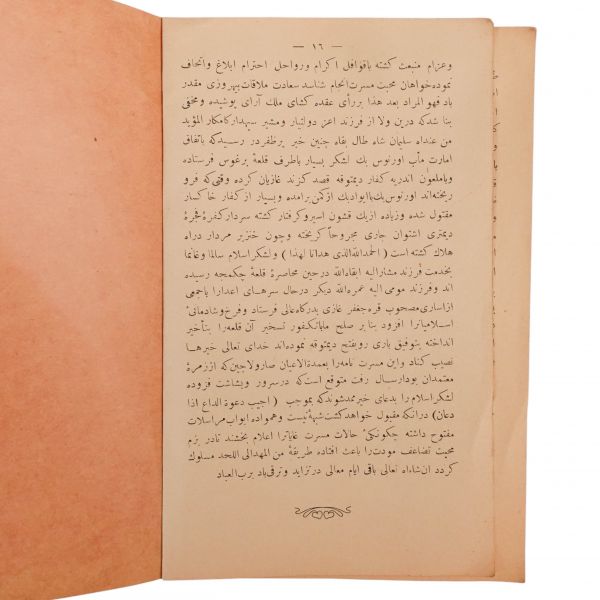 — ١٦ —
وعزام منبعث كشته باقوافل اكرام ورواحل احترام ابلاغ واتحاف
نموده‌خواهان محبت مسرت‌انجام شناسد سعادت ملاقات بهروزی مقدر
باد فهو المراد بعد هذا بررأی عقده كشای ملك آرای پوشیده ومخفی
بنا شدكه درین ولا از فرزند اعز دولتیار ومشیر سپهدار كامكار المؤید
من عندالله سلیمان شاه طال بقاه چنین خبر پرظفر در رسید كه باتفاق
امارت مآب اورنوس بك لشكر بسیار باطرف قلعهٔ برغوس فرستاده
وباملعون اندریه كفار دیمتوقه قصد كزند غازیان كرده وقتی كه فرو
ریخته‌اند اورنوس بك باایوادبك از كمن برامده وبسیار از كفار خاكسار
مقتول شده وزیاده ازیك قشون اسیر وكرفتار كشته سردار كفرهٔ فجرهٔ
دیمتری اشتوان جاری مجروحا كریخته وچون خنزیر مردار دراه
هلاك كشته است ( الحمدلله‌الذی هدانا لهذا ) ولشكر اسلام سالما وغانما
بخدمت فرزند مشارالیه ابقاه‌الله درحین محاصرهٔ قلعهٔ چكمجه رسیده
اند وفرزند مومی الیه عمره‌الله دیكر درحال سرهای اعدارا باجمعی
ازاساری مصحوب قره‌جعفر غازی بدركاه‌عالی فرستاد وفرخ وشادمانی
اسلامیانرا افزود بنابر صلح ماباتكفور تسخیر آن قلعه‌را بتأخیر
انداخته بتوفیق باری روبفتح دیمتوقه نموده‌اند خدای تعالی خیرها
نصیب كناد واین مسرت نامه‌را بعمدةالاعیان صارولاچین‌كه اززمرهٔ
معتمدان بود ارسال رفت متوقع است‌كه درسرور وبشاشت فزوده
لشكر اسلام را بدعای خیر ممدشوند كه بموجب ( اجیب دعوة الداع اذا
دعان ) درانكه مقبول خواهد كشت شبهه نیست وهمواره ابواب مراسلات
مفتوح داشته چكونكی حالات مسرت غایاترا اعلام بخشند تادر بزم
محبت تضاعف مودت‌را باعث افتاده طریقهٔ من المهدالی اللحد مسلوك
كردد ان‌شاءالله تعالی باقی ایام معالی درتزاید وترقی باد برب العباد